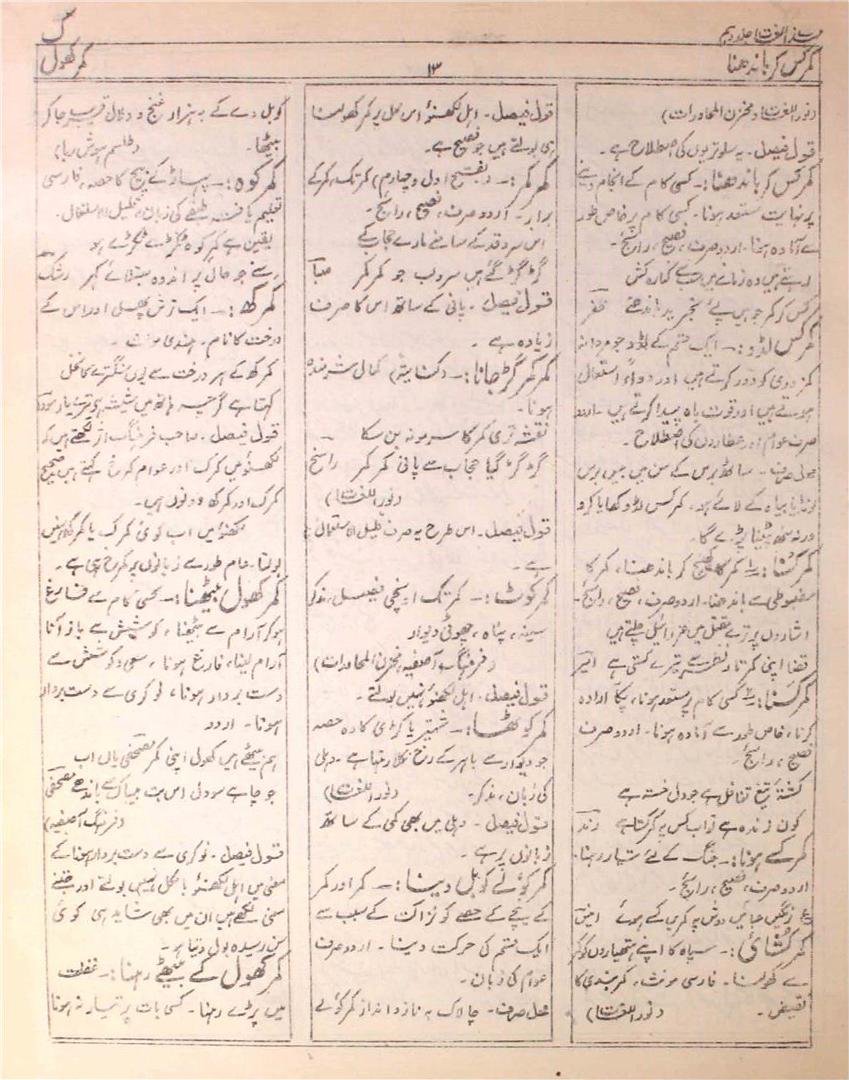 مہذب اللغات جلد دہم
ک
کمر کس کر باندھنا
۱۳
کمر کھول
(نور اللغات و مخزن المحاورات)
قول فیصل۔ یہ سلوتریوں کی اصطلاح ہے۔
کمر کس کر باندھنا:۔ کسی کام کے انجام دینے
پر نہایت مستعد ہونا۔ کسی کام پر خاص طور
سے آمادہ ہونا۔ اردو صرف، فصیح، رائج۔
رہتے ہیں وہ زمانے میں سب سے کنارہ کش
کس کر کمر جو ہیں پئے تجرید باندھتے ظفر
کمر کس لڈو:۔ ایک قسم کے لڈو جو مردانہ
کمزوری کو دور کرتے ہیں اور دواءً استعمال
ہوتے ہیں اور قوت باہ پیدا کرتے ہیں۔ اردو
صرف عوام اور عطاروں کی اصطلاح۔
محل صرف۔ ساٹھ برس کے سن میں بیس برس
لونڈیا بیاہ کے لائے ہو۔ کمر کس لڈو کھایا کرو
ورنہ منھ پیٹنا پڑے گا۔
کمر کسنا:۔ کمر کا کھینچ کر باندھنا، کمر کا
مضبوطی سے باندھنا۔ اردو صرف، فصیح، رائج۔
اشاروں پر ترے مقتل میں عزرائیل چلتے ہیں
قضا اپنی کمر تار نظر سے تیرے کستی ہے امیر
کمر کسنا:۔ کسی کام پر مستعد ہونا، پکا ارادہ
کرنا، خاص طور سے آمادہ ہونا۔ اردو صرف
فصیح، رائج۔
کشتۂ تیغ تغافل ہے جو دل خستہ ہے
کون زندہ ہے تو اب کس پہ کمر کستا ہے رند
کمر کسے ہونا:۔ جنگ کے لئے تیار رہنا۔
اردو صرف، فصیح، رائج۔
ع زلفیں جائیں دوش پہ کمریں کسے ہوئے انیس
کمر کشائی:۔ سپاہ کا اپنے ہتھیاروں کو کمر
سے کھولنا۔ فارسی مونث۔ کمر بندی کا
نقیض۔ (نور اللغات)
قول فیصل۔ اہل لکھنؤ اس محل پر کمر کھولنا
ہی بولتے ہیں جو فصیح ہے۔
کمر کمر:۔ (بفتح اول و چہارم) کمر تک، کمر کے
برابر۔ اردو صرف، فصیح، رائج۔
اس سرو قد کے سامنے مارے حجاب کے
گڑ گڑ گئے ہیں سرو لب جو کمر کمر صبا
قول فیصل۔ پانی کے ساتھ اس کا صرف
زیادہ ہے۔
کمر کمر گڑ جانا:۔ (کنایتہً) کمال شرمندہ
ہونا۔
نقشہ تری کمر کا سر مو نہ بن سکا
گڑ گڑ گیا حجاب سے پانی کمر کمر راسخ
(نور اللغات)
قول فیصل۔ اس طرح یہ صرف قلیل الاستعمال
ہے۔
کمر کوٹا:۔ کمر تک اونچی فصیل، مذکر
سینہ، پناہ، چھوٹی دیوار
(فرہنگ آصفیہ مخزن المحاورات)
قول فیصل۔ اہل لکھنؤ نہیں بولتے۔
کمر کوٹھا:۔ شہتیر یا کڑی کا وہ حصہ
جو دیوار سے باہر کے رخ نکلا رہتا ہے۔ دہلی
کی زبان، مذکر۔ (نور اللغات)
قول فیصل۔ دہلی میں بھی کمی کے ساتھ
زبانوں پر ہے۔
کمر کولے کو بل دینا:۔ کمر اور کمر
کے نیچے کے حصے کو نزاکت کے سبب سے
ایک قسم کی حرکت دینا۔ اردو صرف
عوام کی زبان۔
محل صرف۔ چالاک بہ ناز و انداز کمر کولے
کو بل دے کے بہ ہزار غنج و دلال قریب جا کر
بیٹھا۔ (طلسم ہوش ربا)
کمر کوہ:۔ پہاڑ کے بیچ کا حصہ، فارسی
تعلیم یافتہ طبقے کی زبان، قلیل الاستعمال۔
یقین ہے کمر کوہ ٹکڑے ٹکڑے ہو
سنے جو حال پر اندوہ مبتلائے کمر رشک
کمرکھ:۔ ایک ترش پھل اور اس کے
درخت کا نام۔ ہندی مونث۔
کمرکھ کے ہر درخت سے یوں سنگترے کا نخل
کہتا ہے گرچہ ہاتھ میں شیشہ ہو تیرے یار سودا
قول فیصل۔ صاحب فرہنگ اثر لکھتے ہیں کہ
لکھنؤ میں کمرک اور عوام کمرخ کہتے ہیں صحیح
کمرک اور کمرکھ دونوں ہیں۔
لکھنؤ میں اب کوئی کمرک یا کمرکھ نہیں
بولتا۔ عام طور سے زبانوں پر کمرخ ہی ہے۔
کمر کھول بیٹھنا:۔ کسی کام سے فارغ
ہو کر آرام سے بیٹھنا، کوشش سے باز آنا
آرام لینا، فارغ ہونا، سعی و کوشش سے
دست بردار ہونا، نوکری سے دست بردار
ہونا۔ اردو
ہم بیٹھے ہیں کھول اپنی کمر مصحفی یاں اب
جو چاہے سو دل اس بت بیباک سے باندھے مصحفی
(فرہنگ آصفیہ)
قول فیصل۔ نوکری سے دست بردار ہونا کے
معنی میں اہل لکھنؤ بالکل نہیں بولتے اور جتنے
معنی لکھے ہیں ان میں بھی شاید ہی کوئی
سن رسیدہ بول دیتا ہو۔
کمر کھول کے بیٹھے رہنا:۔ غفلت
میں پڑے رہنا۔ کسی بات پر تیار نہ ہونا